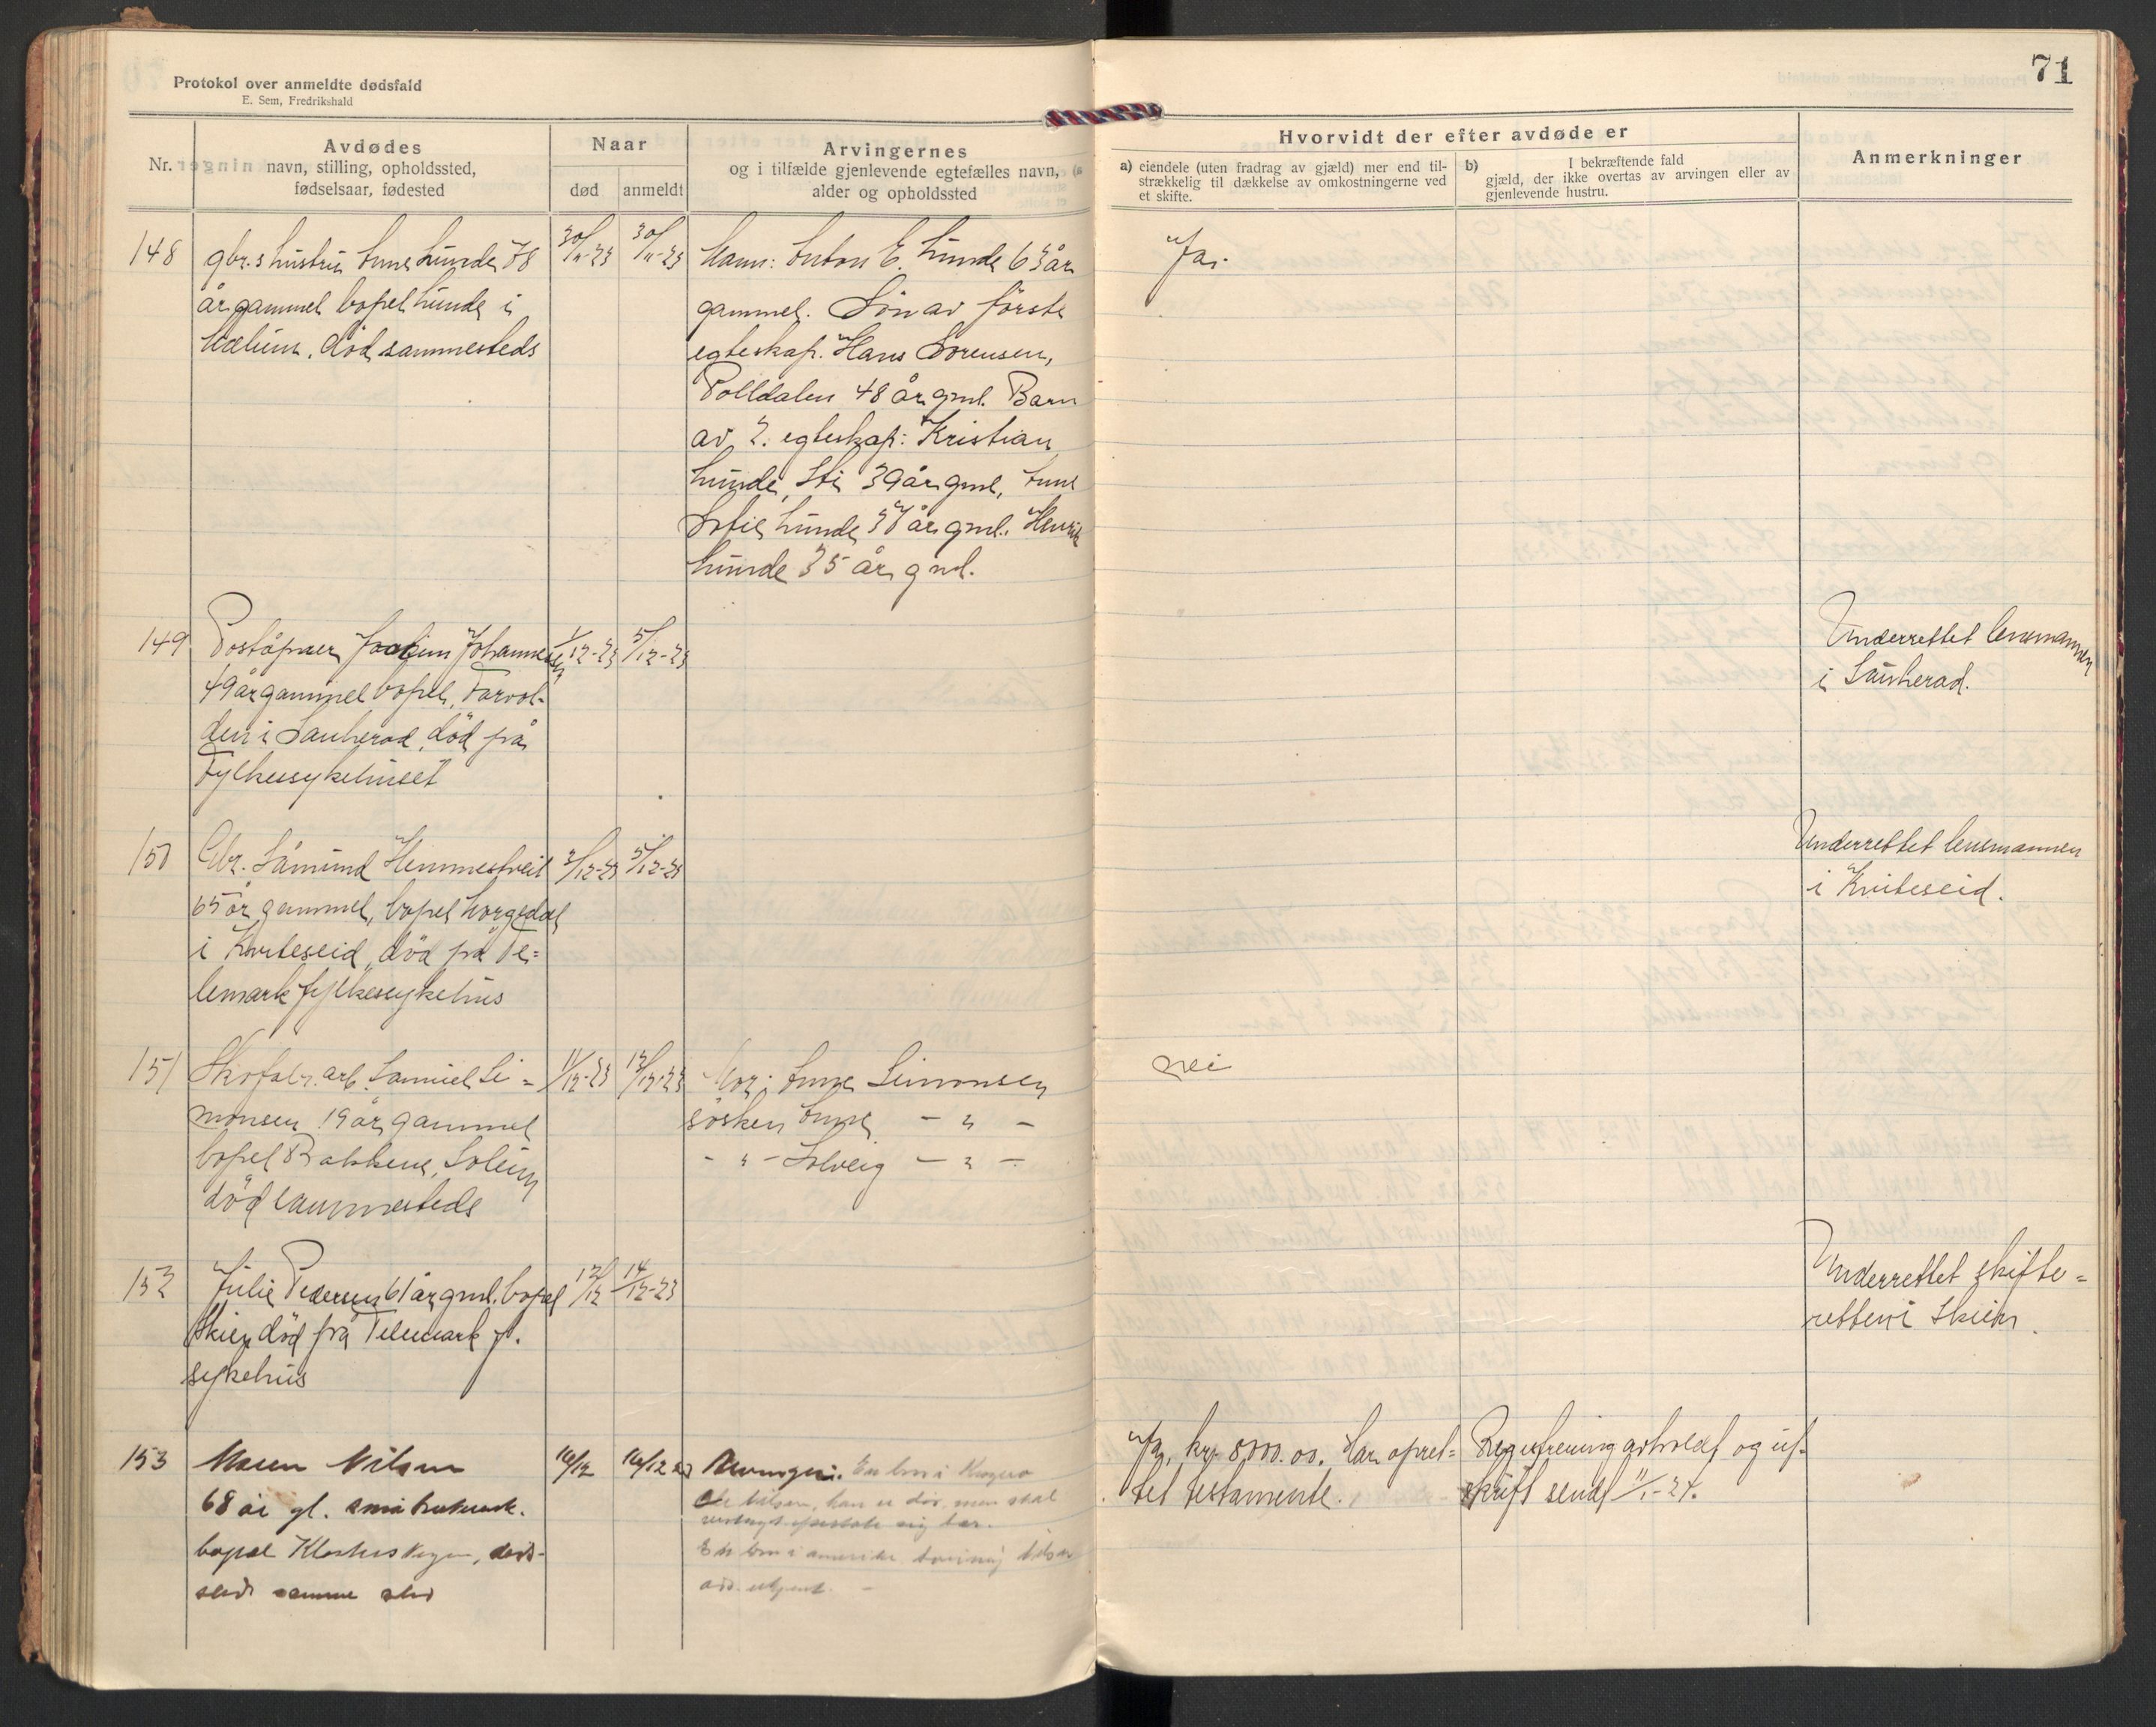 Protokol over anmeldte dødsfald
E. Sem, Fredrikshald
71
Nr.
Avdødes
navn, stilling, opholdssted,
fødselsaar, fødested
Naar
død
anmeldt
Arvingernes
og i tilfælde gjenlevende egtefælles navn,
alder og opholdssted
Hvorvidt der efter avdøde er
a) eiendele (uten fradrag av gjæld) mer end til-
strækkelig til dækkelse av omkostningerne ved
et skifte.
b) I bekræftende fald
gjæld, der ikke overtas av arvingen eller av
gjenlevende hustru.
Anmerkninger
148
gbr.s hustru Anne Lunde 78
år gammel bopel Lunde i
Mælum, död sammesteds
30/11-23
30/11-23
Mann: Anton E. Lunde 63 år
gammel. Sön av förste
egteskap. Hans Sorensen,
Polldalen 48 år gml. Barn
av 2. egteskap: Kristian
Lunde, Sti 39 år gml, Anne
Sofie Lunde 37 år gml. Henrik
Lunde 35 år gml.
Ja.
149
Poståpner Joakim Johannesen
49 år gammel bopel, Farvol-
den i Sauherad, död på
Fylkessykehuset
1/12-23
5/12-23
Underrettet lensmannen
i Sauherad.
150
Gbr. Såmund Hemmestveit
65 år gammel, bopel Morgedal
i Kviteseid, död på Te=
lemark fylkessykehus
3/12-23
5/12-23
Underrettet lensmannen
i Kviteseid.
151
Skofabr. arb. Samuel Si=
monsen 19 år gammel
bopel Bakkene, Solum
död sammesteds
11/12-23
12/12-23
Mor: Anne Simonsen
sösken Anne - " -
- " - Solveig - " -
nei
152
Julie Pedersen 61 år gml. bopel
Skien död på Telemark f.
sykehus
12/12
14/12-23
Underrettet skifte=
retten i Skien.
153
Maren Nilsen
68 år gl. småbrukersk.
bopæl Klosterskogen, döds-
sted samme sted
16/12
16/12 23
Arvinger: En bror i
Nilsen, han er död, men skal
sig her.
En bror i amerika Nilsen
adr. ukjent. -
Ja, kr. 8000.00. Har opret=
tet testamente.
Registrering avholdt og ut-
skrift sendt 11/1-24.